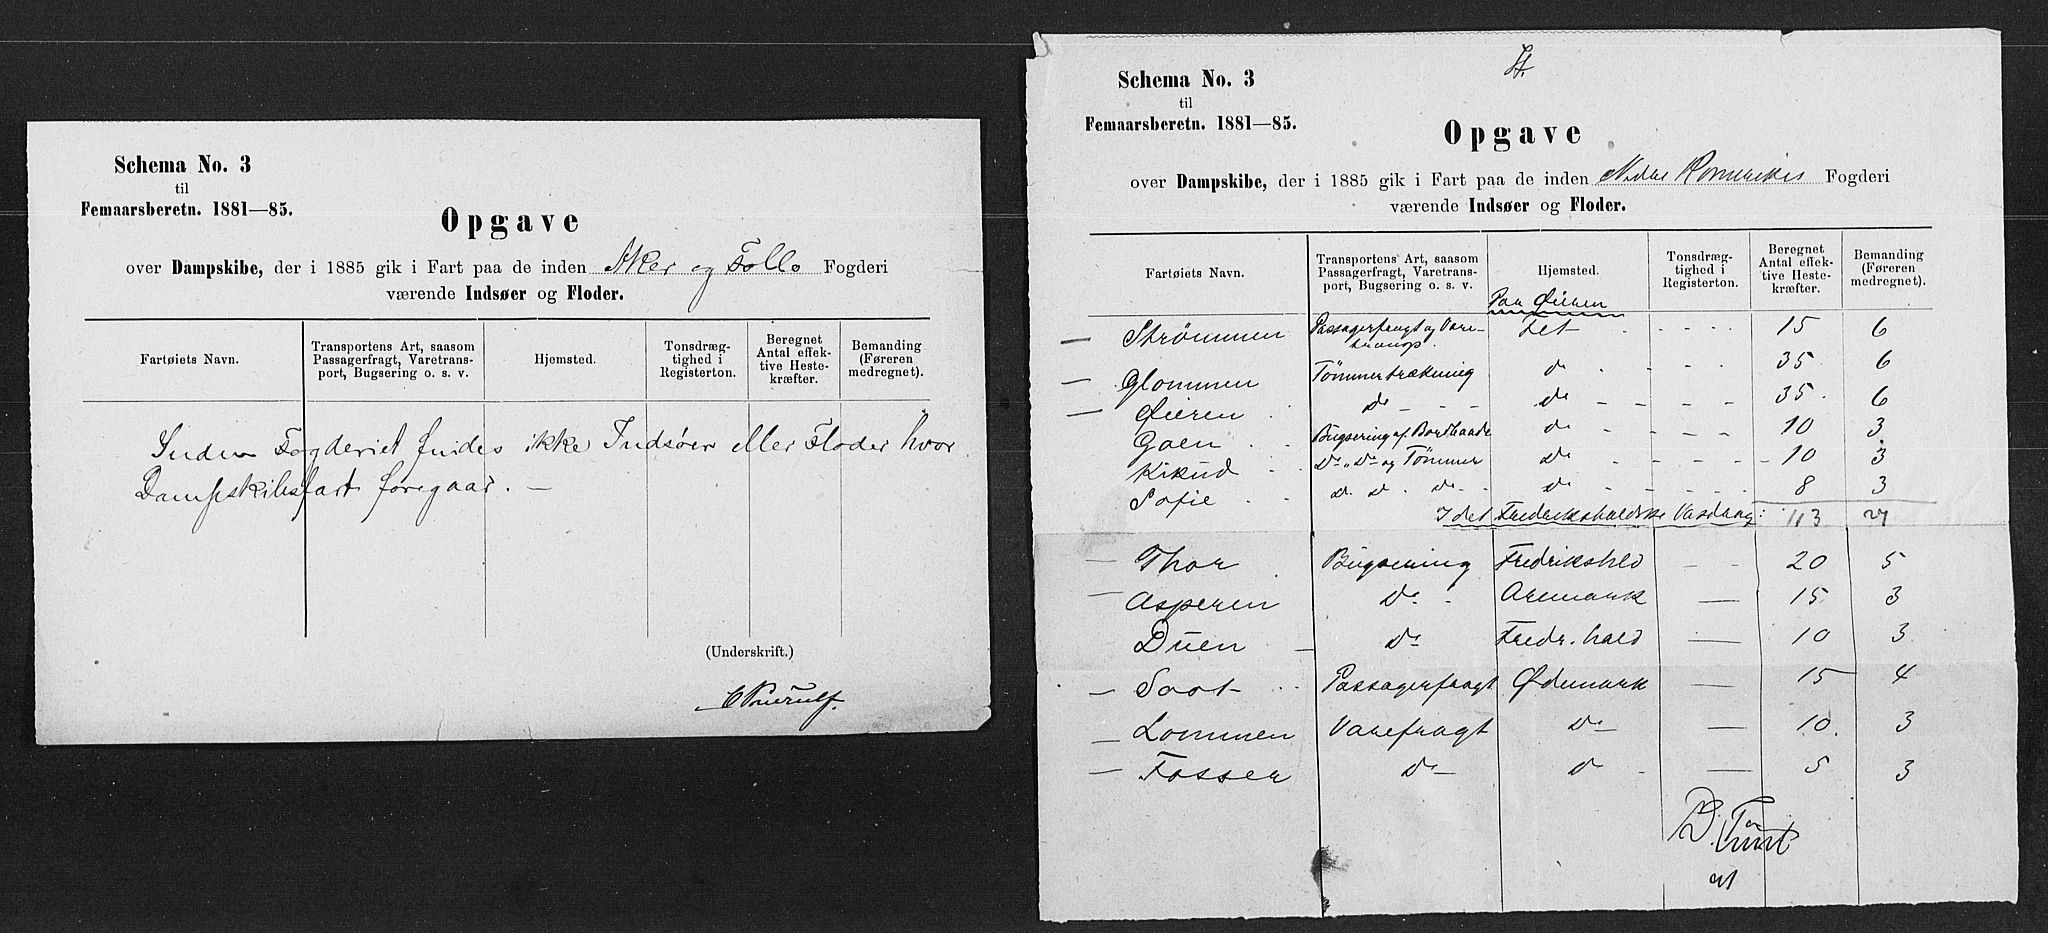 Schema No. 3
til
Femaarsberetn. 1881—85.
Opgave
over Dampskibe, der i 1885 gik i Fart paa de inden Aker og Follo Fogderi
værende Indsøer og Floder.
Fartøiets Navn. Transportens Art, saasom Passagerfragt, Varetrans-port, Bugsering o. s. v. Hjemsted. Tonsdræg-tighed i Registerton. Beregnet Antal effek-tive Heste-kræfter. Bemanding (Føreren medregnet).
Inden Fogderiet findes ikke Indsøer eller Floder hvor
Dampskibsfart foregaar. —
(Underskrift.)
Schema No. 3
til
Femaarsberetn. 1881—85.
Opgave
over Dampskibe, der i 1885 gik i Fart paa de inden Nedre Romerikes Fogderi
værende Indsøer og Floder.
Fartøiets Navn. Transportens Art, saasom Passagerfragt, Varetrans-port, Bugsering o. s. v. Hjemsted. Tonsdræg-tighed i Registerton. Beregnet Antal effek-tive Heste-kræfter. Bemanding (Føreren medregnet).
Paa Øieren
— Strømmen Passagerfragt og Vare-transp. Fet 15 6
— Glommen Tømmertrækning do 35 6
— Øieren Do do 35 6
Goen Bugsering af Bordbaade do 10 3
Kikud Do " Do og Tømmer Do 10 3
Sofie D. D. do do 8 3
I det Fredrikshaldske Vasdrag: 113 27
— Thor Bugsering Fredrikshald 20 5
— Asperen Do Aremark — 15 3
Duen — Do Fredr.hald — 10 3
— Soot Passagerfragt Ødemark — 15 4
— Lommen Varefragt Do — 10 3
— Fosser Do D — 5 3